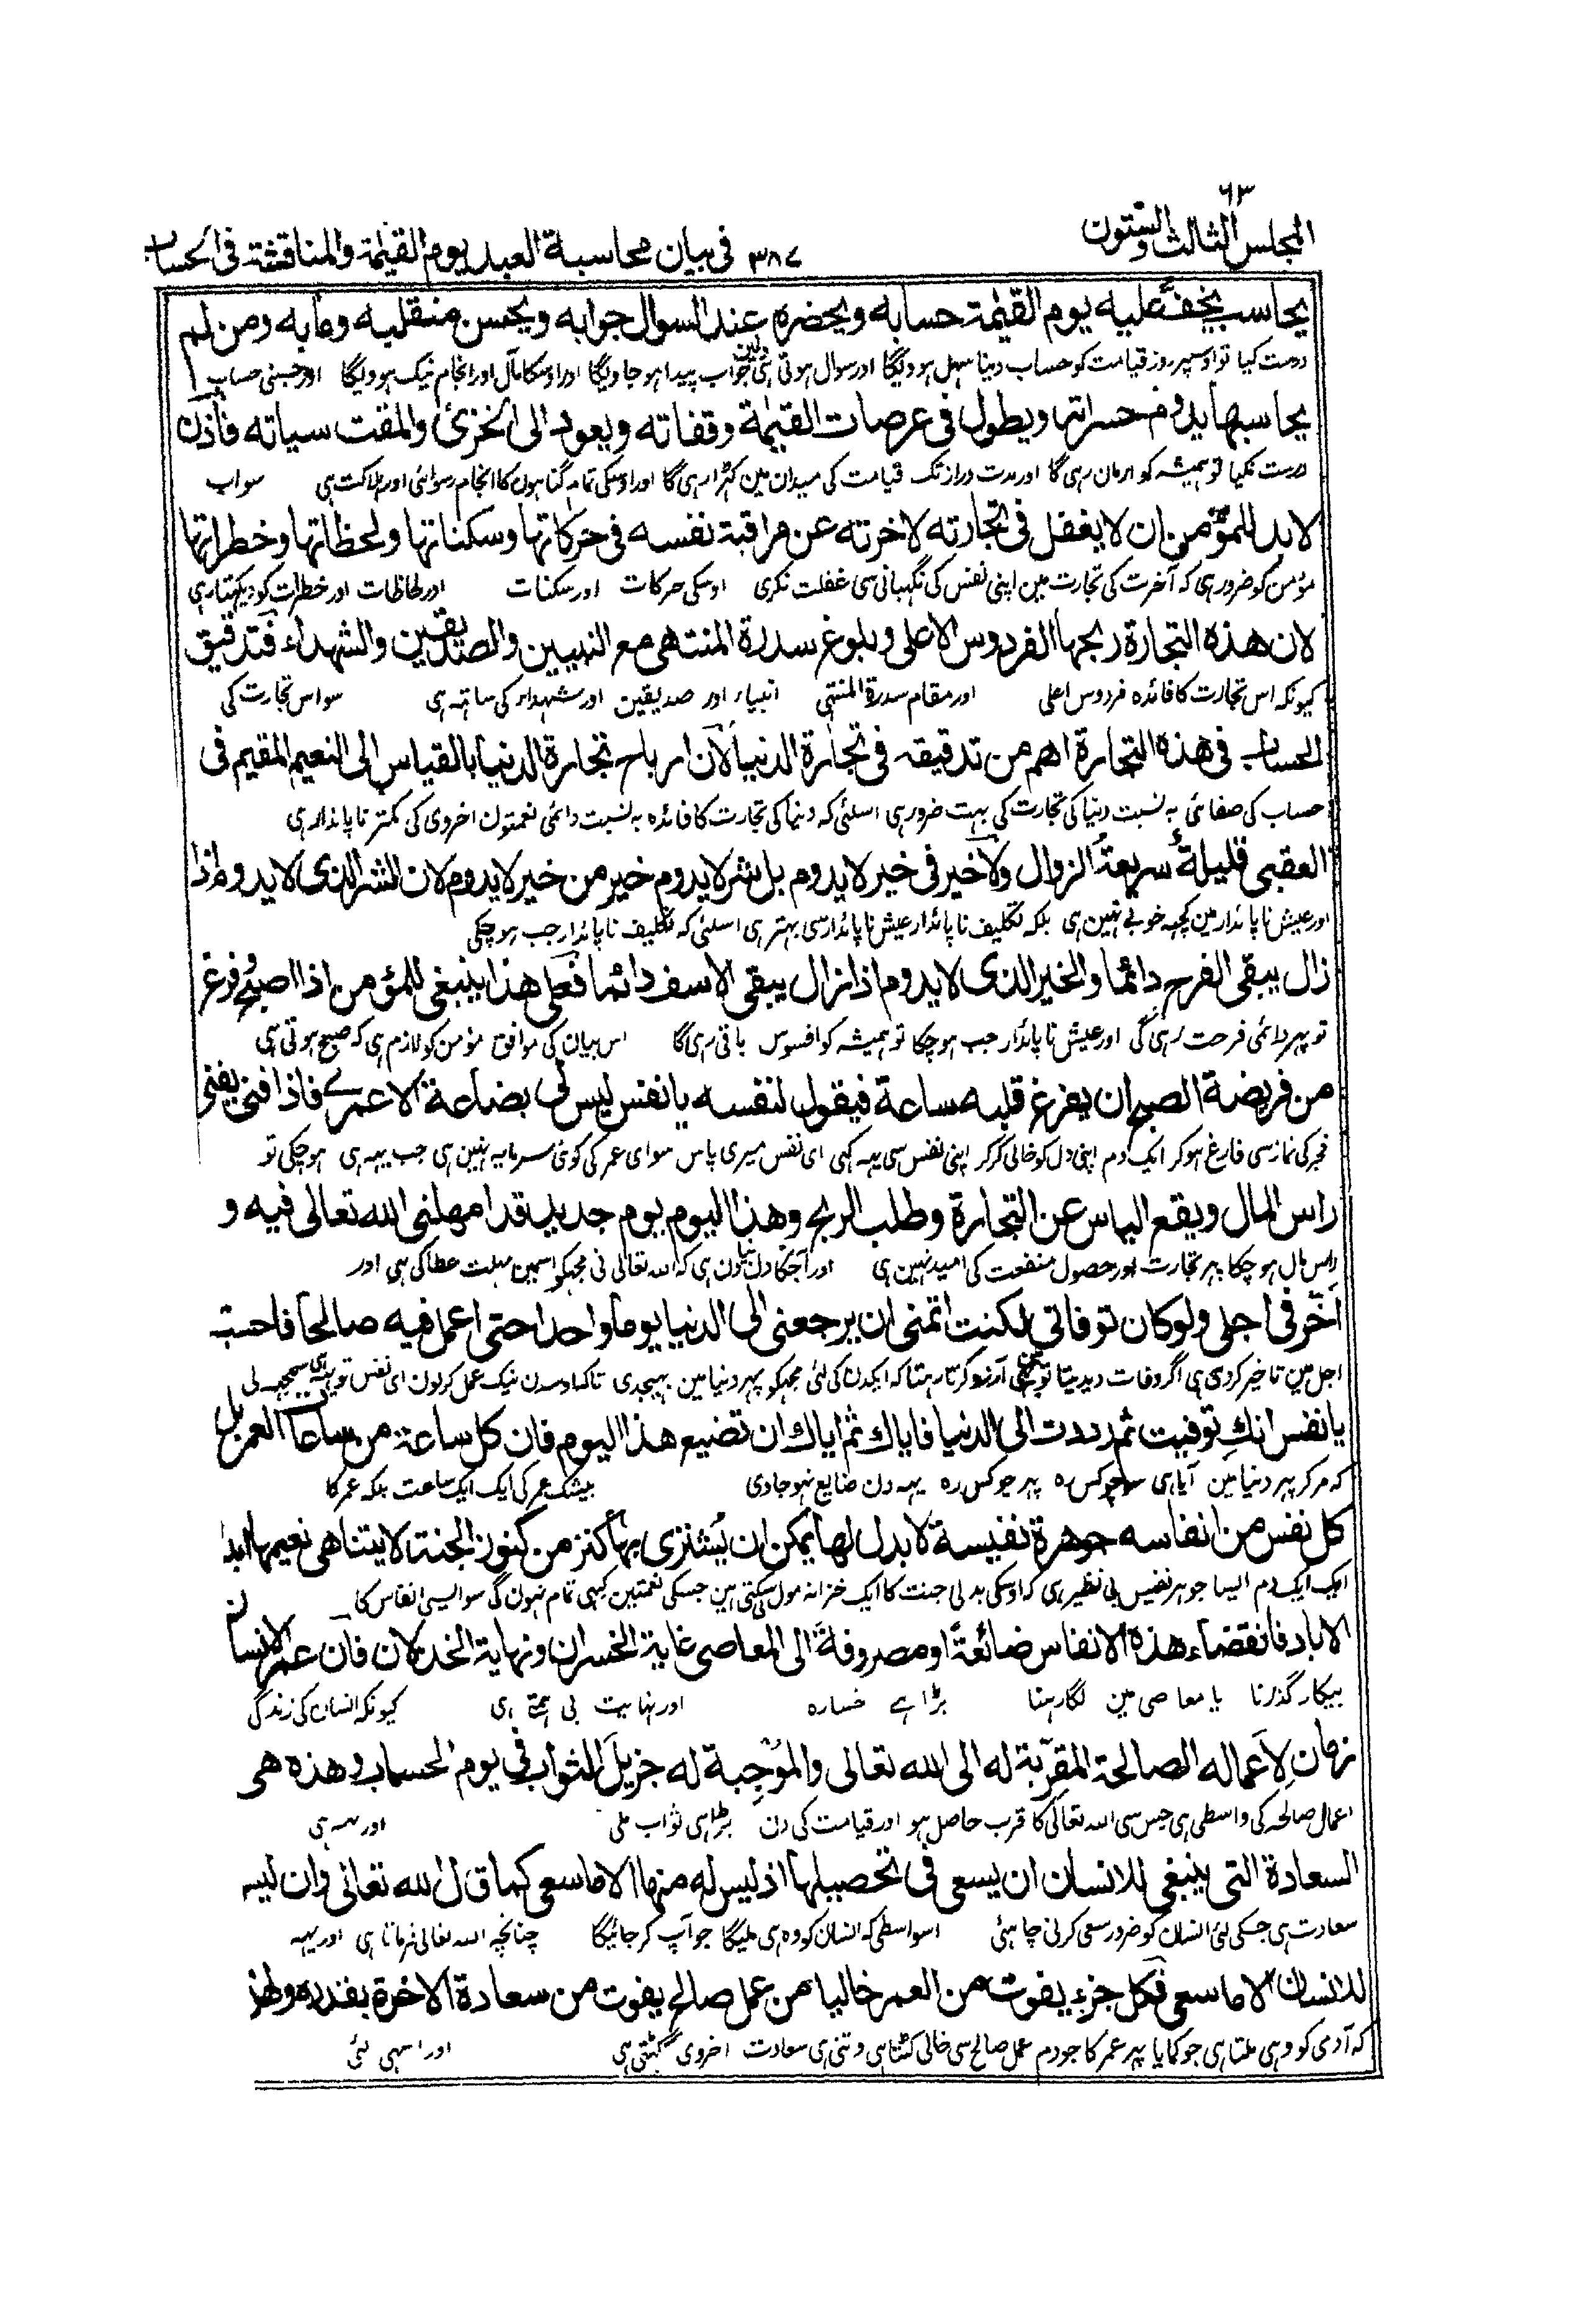 ٦٣
المجلس الثالث والستون ٣٨٧ فی بیان محاسبة العبد یوم القیٰمة والمناقشة فی الحساب
یحاسب یخف علیه یوم القیٰمة حسابه ویحضره عند السوال جوابه ویحسن منقلبه ومابه ومن لم
درست کیا تو اوسپر روز قیامت کو حساب دینا سہل ہوویگا اور سوال ہوتی ہی جواب پیدا ہو جاویگا اور اوسکا مآل اور انجام نیک ہوویگا اور جسنی حساب
یحاسبها یدوم حسراتها ویطول فی عرصات القیٰمة وقفاته ویعود الی الخزی والمقت سیاته فاذن
درست نکیا تو ہمیشہ کو ارمان رہی گا اور مدت دراز تک قیامت کی میدان مین کہڑا رہی گا اور اوسکی تمام گناہون کا انجام رسوائی اور ہلاکت ہی سو اب
لابد للمؤمن ان لا یغفل فی تجارته لاخرته عن مراقبة نفسه فی حرکاتها وسکناتها ولحظاتها وخطراتها
مؤمن کو ضرور ہی کہ آخرت کی تجارت مین اپنی نفس کی نگہبانی سی غفلت نکری اوسکی حرکات اور سکنات اور لحاظات اور خطرات کو دیکہتا رہی
لان هذه التجارة ربحها الفردوس الاعلی وبلوغ سدرة المنتهی مع النبیین والصدیقین والشهداء فتدقیق
کیونکہ اس تجارت کا فائدہ فردوس اعلی اور مقام سدرۃ المنتہی انبیاء اور صدیقین اور شہداء کی ساتہہ ہی سو اس تجارت کی
الحساب فی هذه التجارة اهم من تدقیقه فی تجارة الدنیا لان ارباح تجارة الدنیا بالقیاس الی النعیم المقیم فی
حساب کی صفائی بہ نسبت دنیا کی تجارت کی بہت ضرور ہی اسلئی کہ دنیا کی تجارت کا فائدہ بہ نسبت دائمی نعمتون اخروی کی کمتر ناپائدار ہی
العقبی قلیلة سریعة الزوال ولا خیر فی خیر لا یدوم بل شر لا یدوم خیر من خیر لا یدوم لان الشر الذی لا یدوم اذا
اور عیش ناپائدار مین کچہہ خوبے نہین ہی بلکہ تکلیف ناپائدار عیش ناپائدار سی بہتر ہی اسلئی کہ تکلیف ناپائدار جب ہو چکی
زال یبقی الفرح دائما والخیر الذی لا یدوم اذا زال یبقی الاسف دائما فعلی هذا ینبغی للمؤمن اذا اصبح وفرغ
تو پہر دائمی فرحت رہی گی اور عیش ناپائدار جب ہو چکا تو ہمیشہ کو افسوس باقی رہی گا اس بیان کی موافق مؤمن کو لازم ہی کہ صبح ہوتی ہی
من فریضة الصبح ان یفرغ قلبه ساعة فیقول لنفسه یا نفس لیس لی بضاعة الا عمری فاذا فنی یفنی
فجر کی نماز سی فارغ ہو کر ایک دم اپنی دل کو خالی کر کر اپنی نفس سی یہہ کہی ای نفس میری پاس سوای عمر کی کوئی سرمایہ نہین ہی جب یہہ ہی ہو چکی تو
راس المال ویقع الیاس عن التجارة وطلب الربح وهذا الیوم یوم جدید قد امهلنی الله تعالی فیه و
راس مال ہو چکا پہر تجارت اور حصول منفعت کی امید نہین ہی اور آجکا دن نیا دن ہی کہ اللہ تعالی نی مجہکو اسمین مہلت عطا کی ہی اور
اخر فی اجلی ولو کان توفانی لکنت اتمنی ان یرجعنی الی الدنیا یوما واحدا حتی اعمل فیه صالحا فاحسب
اجل مین تاخیر کردی ہی اگر وفات دیدیتا تو آرزو کرتا رہتا کہ ایکدن کی لئی مجہکو پہر دنیا مین بہیجدی تاکہ اوسدن نیک عمل کرلون ای نفس تو یہہ ہی سمجہہ لی
یا نفس انك توفیت ثم رددت الی الدنیا فایاك ثم ایاك ان تضیع هذا الیوم فان کل ساعة من ساعات العمر بل
کہ مر کر پہر دنیا مین آیا ہی سو چوکس رہ پہر چوکس رہ یہہ دن ضایع نہو جاوی بیشک عمر کی ایک ایک ساعت بلکہ عمر کا
کل نفس من انفاسه جوهرة نفیسة لا بدل لها یمکن ان یشتری بها کنز من کنوز الجنة لا یتناهی نعیمها ابد
ایک ایک دم ایسا جوہر نفیس بی نظیر ہی کہ اوسکی بدلی جنت کا ایک خزانہ مول لی سکتی ہین جسکی نعمتین کبہی تمام نہون گی سو ایسی انفاس کا
الاباد فانقضاء هذه الانفاس ضائعة او مصروفة الی المعاصی غایة الخسران ونهایة الخذلان فان عمر الانسان
بیکار گذرنا یا معاصی مین لگا رہنا بڑا ہے خسارہ اور نہایت بی ہمتے ہی کیونکہ انسان کی زندگی
زمان لاعماله الصالحة المقربة له الی الله تعالی والموجبة له جزیل الثواب فی یوم الحساب وهذه هی
اعمال صالحہ کی واسطی ہی جس سی اللہ تعالی کا قرب حاصل ہو اور قیامت کی دن بڑا ہی ثواب ملی اور یہہ ہی
السعادة التی ینبغی للانسان ان یسعی فی تحصیلها اذ لیس له منها الا ما سعی کما قال الله تعالی وان لیس
سعادت ہی جسکی لئی انسان کو ضرور سعی کرنی چاہئی اسواسطی کہ انسان کو وہ ہی ملیگا جو آپ کر جائیگا چنانچہ اللہ تعالی فرماتا ہی اور یہہ
للانسان الا ما سعی فکل جزء یفوت من العمر خالیا من عمل صالح یفوت من سعادة الاخرة بقدره ولهذ
کہ آدمی کو وہی ملتا ہی جو کمایا پہر عمر کا جو دم عمل صالح سی خالی کٹتا ہی وتنی ہی سعادت اخروی گہٹتی ہی اور اسہی لئی